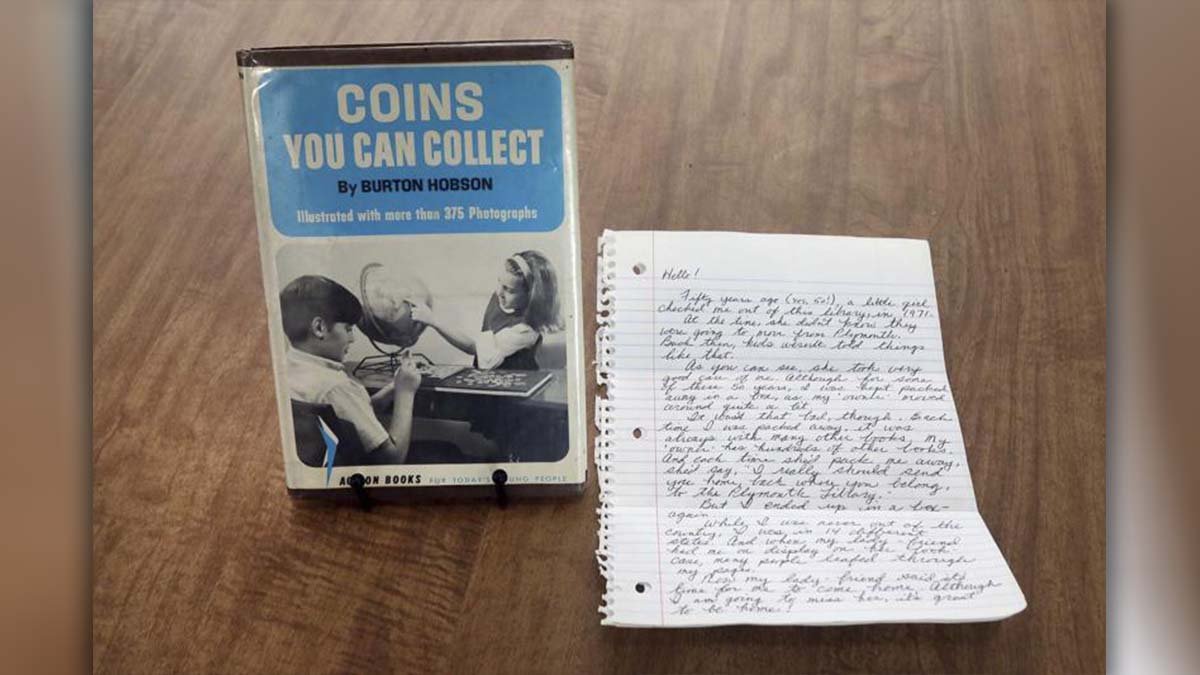 COINS
YOU CAN COLLECT
By BURTON HOBSON
Illustrated with more than 375 Photographs
BOOKS FOR TODAY'S YOUNG PEOPLE
Hello!
Fifty years ago (yes, 50!), a little girl
checked me out of this library, in 1971.
At the time, she didn't know they
were going to move from Plymouth.
Back then, kids weren't told things
like that.
As you can see, she took very
good care of me. Although for some
of these 50 years, I was kept packed
away in a box, as my "owner" moved
around quite a bit.
It wasn't that bad, though. Each
time I was packed away, it was
always with many other books, my
"owner" has hundreds of other books.
And each time she'd pack me away,
she'd say, "I really should send
you home, back where you belong,
to the Plymouth Library."
But I ended up in a box-
again.
While I was never out of the
country, I was in 14 different
states. And when my lady-friend
had me on display on her book-
case, many people leafed through
my pages.
Now my lady-friend said it's
time for me to come home. Although
I am going to miss her, it's great
to be home!